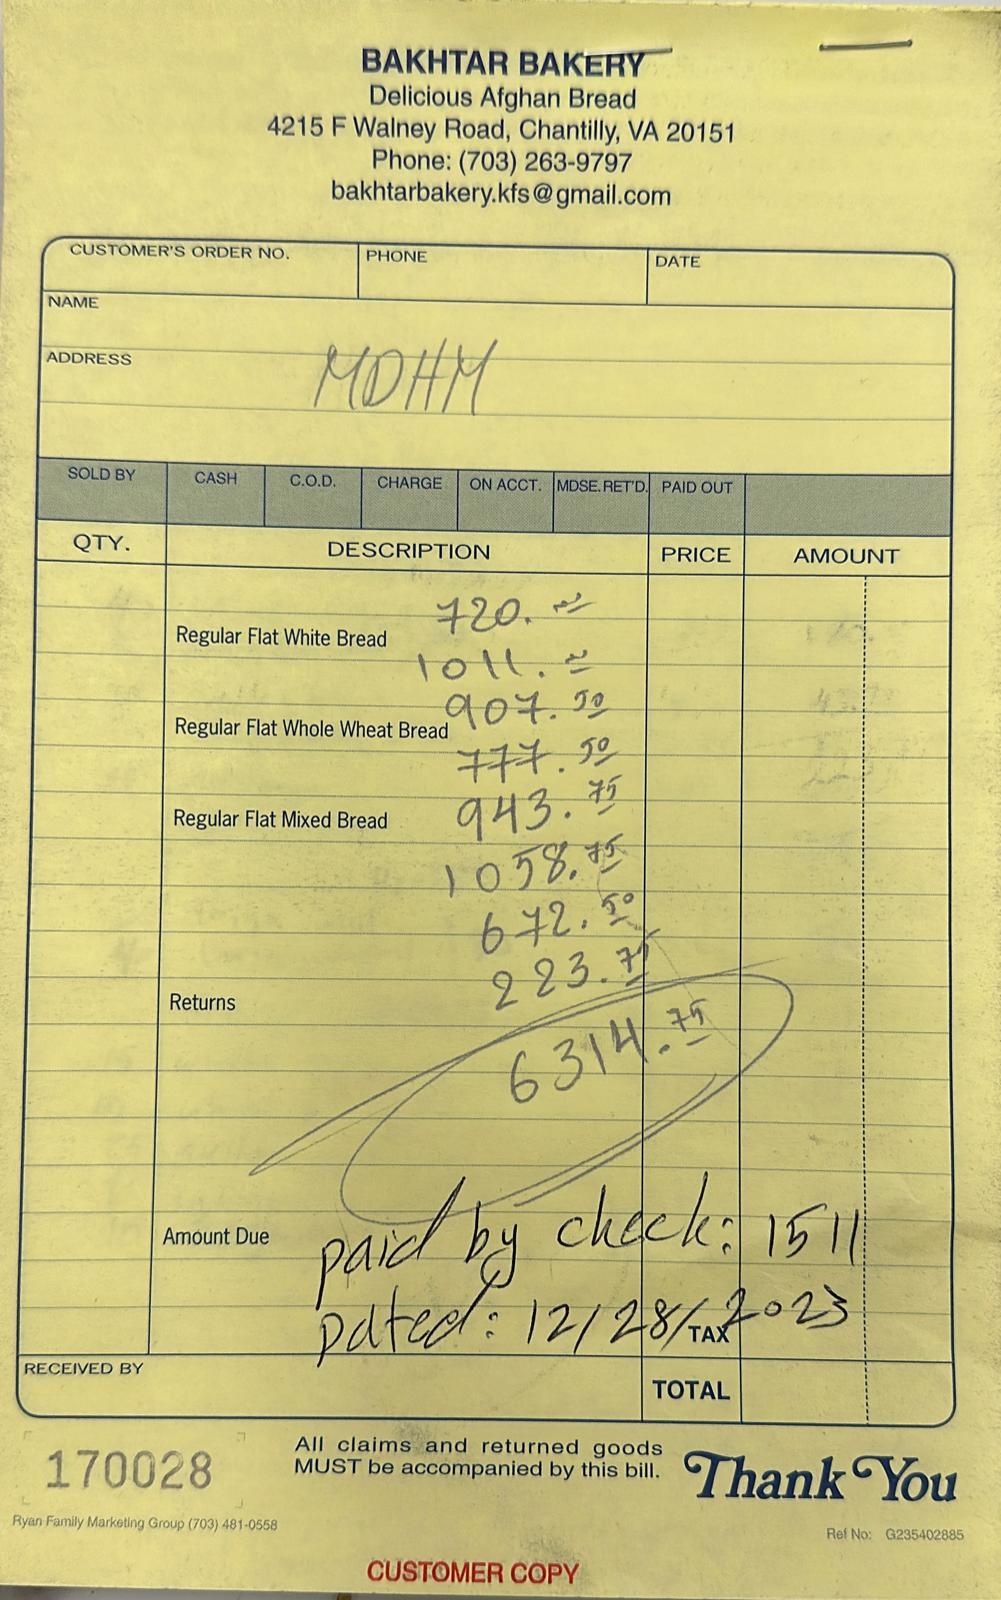 BAKHTAR BAKERY
Delicious Afghan Bread
4215 F Walney Road, Chantilly, VA 20151
Phone: (703) 263-9797
bakhtarbakery.kfs@gmail.com
CUSTOMER'S ORDER NO. PHONE DATE
NAME
ADDRESS
MDHM
SOLD BY CASH C.O.D. CHARGE ON ACCT. MDSE. RET'D. PAID OUT
QTY. DESCRIPTION PRICE AMOUNT
720.
Regular Flat White Bread
1011.
907.50
Regular Flat Whole Wheat Bread
777.50
943.75
Regular Flat Mixed Bread
1058.75
672.50
223.75
Returns
6314.75
paid by check: 1511
Amount Due
pated: 12/28/2023
TAX
RECEIVED BY
TOTAL
170028
All claims and returned goods
MUST be accompanied by this bill.
Thank You
Ryan Family Marketing Group (703) 481-0558
Ref No: G235402885
CUSTOMER COPY